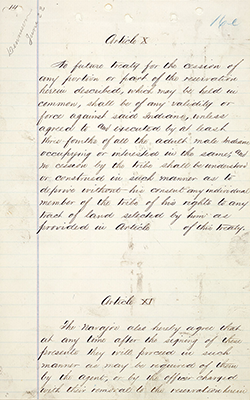 14
16-2
Article X
No future treaty for the cession of
any portion or part of the reservation
herein described, which may be held in
common, shall be of any validity or
force against said Indians, unless
agreed to and executed by at least
three fourths of all the adult male Indians
occupying or interested in the same; and
no cession by the tribe shall be understood
or construed in such manner as to
deprive without his consent any individual
member of the tribe of his rights to any
tract of land selected by him as
provided in Article of this treaty.
Article XI
The Navajos also hereby agree that
at any time after the signing of these
presents they will proceed in such
manner as may be required of them
by the agent, or by the officer charged
with their removal to the reservation herein